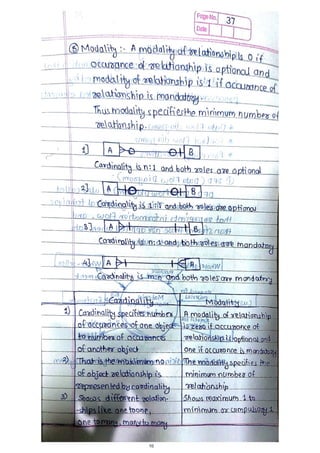 Page No. 37
Date
⑥ Modality :- A modality of relationship is 0 if
occurance of relationship is optional and
modality of relationship is 1 if occurance of
relationship is mandatory
Thus modality specifier the minimum number of
relationship.
1] A B
Cardinality is n:1 and both roles are optional
2] A B
Cardinality is 1:1 and both roles are optional
3] A B
Cardinality is n:1 and both roles are mandatory
4] A B
Cardinality is m:n and both roles are mandatory
Cardinality Modality
1) Cardinality specifies number A modality of relationship
of occurances of one object is zero if occurance of
to number of occurances relationship is optional and
of another object one if occurance is mandatory
2) That is the maximum no. The modality specifies the
of object relationship is minimum number of
represented by cardinality relationship
3) Shows different relation- Shows maximum 1 to
-ships like one to one, minimum or compulsory 1
one to many, many to many